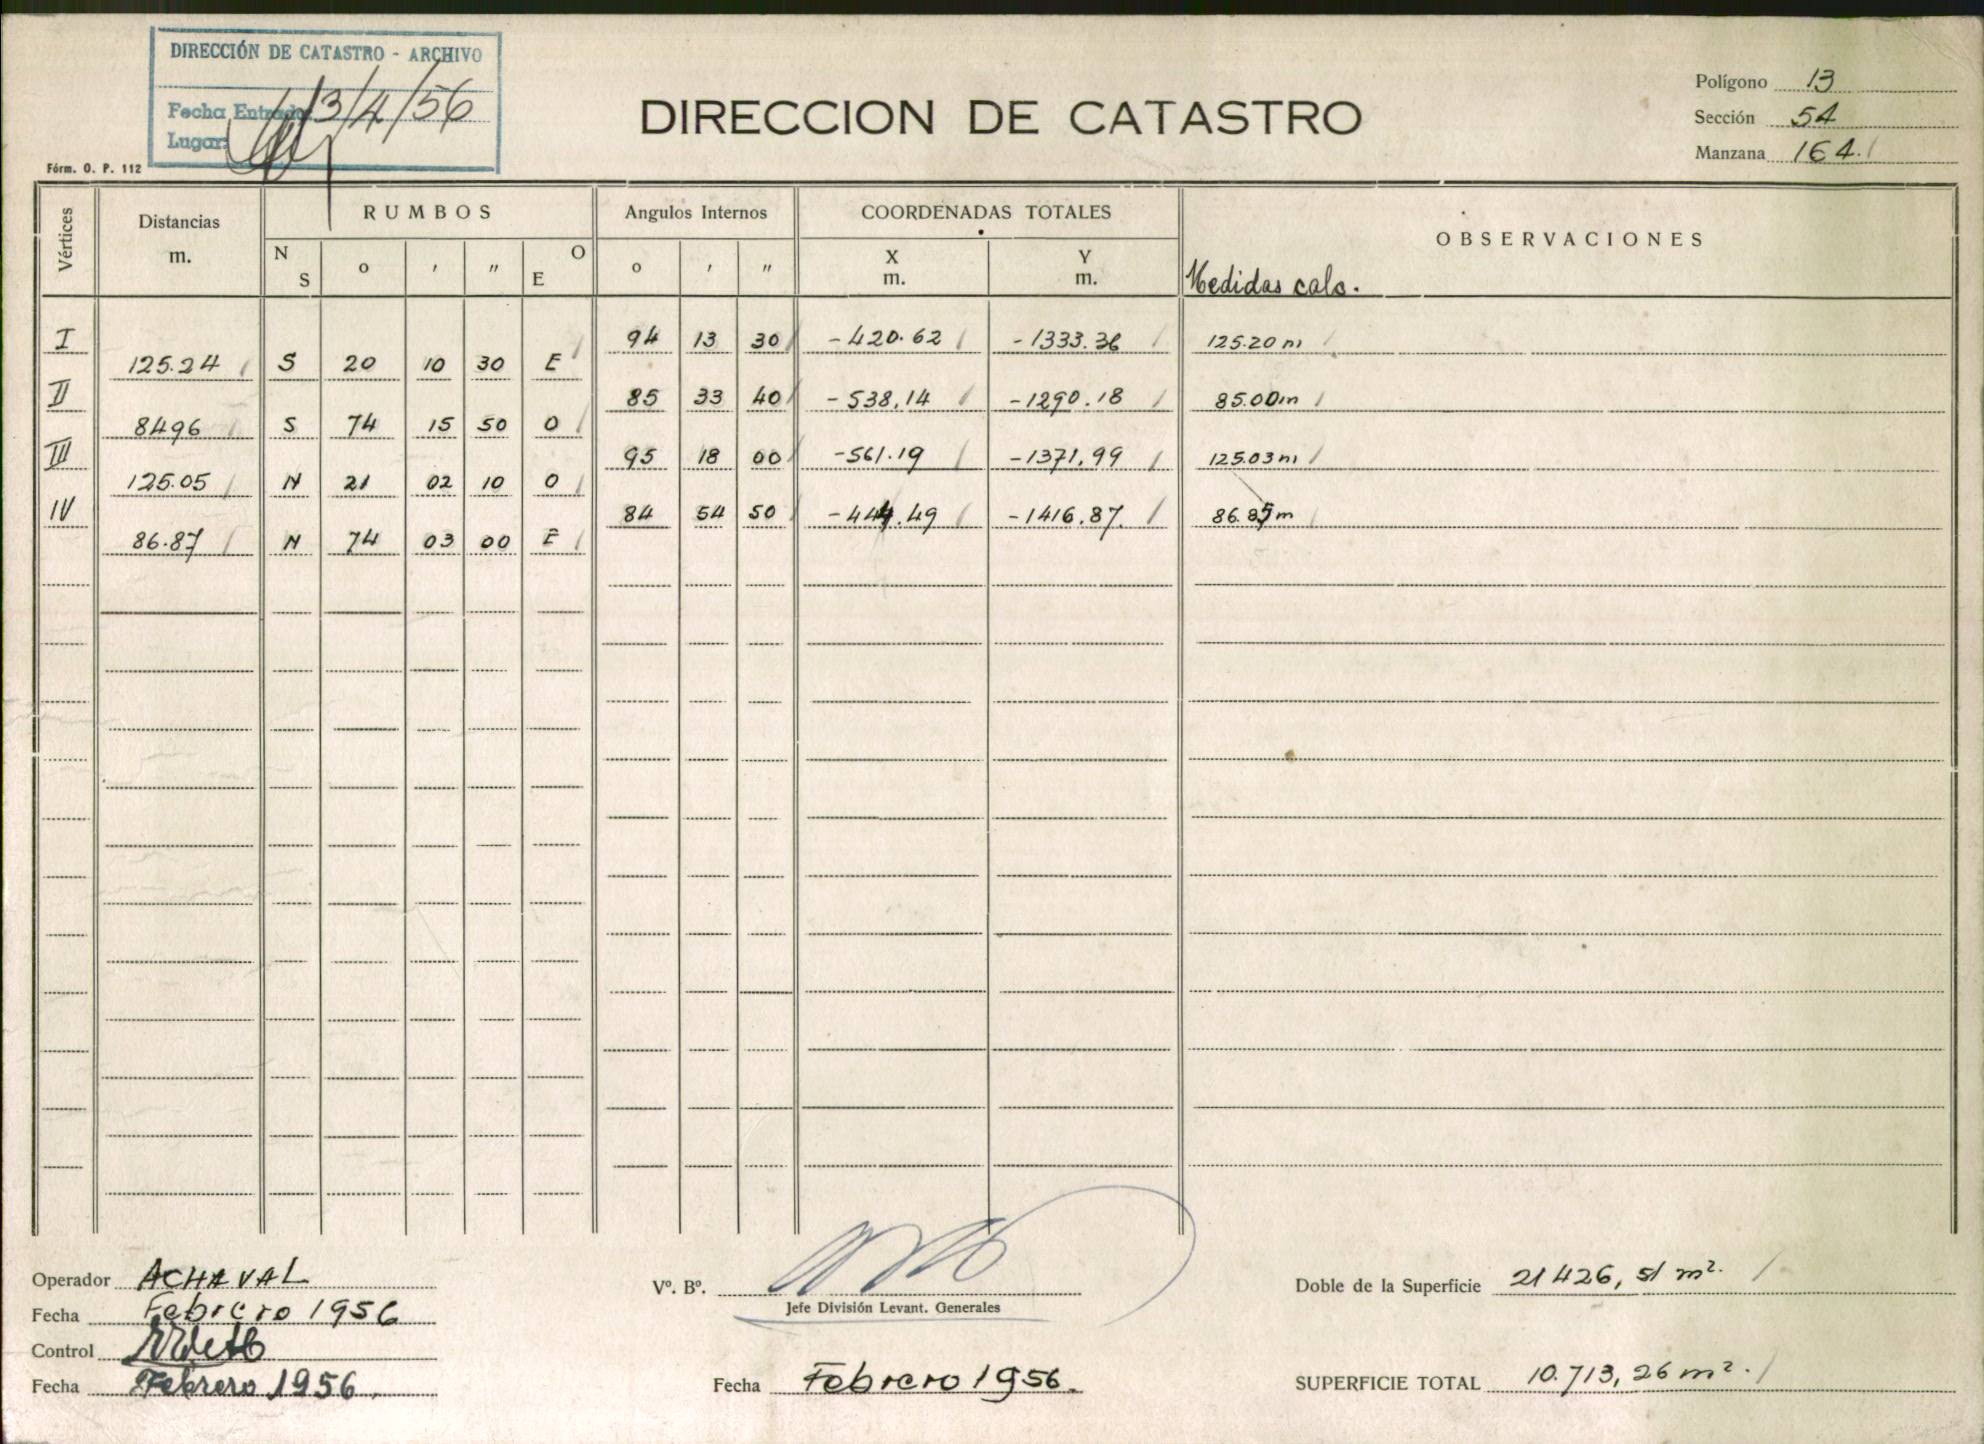 DIRECCIÓN DE CATASTRO - ARCHIVO
Fecha Entrada 13/4/56
Lugar:
Fórm. O. P. 112
DIRECCION DE CATASTRO
Polígono 13
Sección 54
Manzana 164.
Vértices Distancias m. RUMBOS Angulos Internos COORDENADAS TOTALES OBSERVACIONES
N S o ′ ″ O E o ′ ″ X m. Y m. Medidas calc.
I 94 13 30 -420.62 -1333.36 125.20 m
125.24 S 20 10 30 E
II 85 33 40 -538,14 -1290.18 85.00m
8496 S 74 15 50 O
III 95 18 00 -561.19 -1371,99 125.03m
125.05 N 21 02 10 O
IV 84 54 50 -444.49 -1416,87. 86.85m
86.87 N 74 03 00 E
Operador ACHAVAL
Fecha Febrero 1956
Control
Fecha Febrero 1956.
Vº. Bº.
Jefe División Levant. Generales
Fecha Febrero 1956.
Doble de la Superficie 21426, 51 m².
SUPERFICIE TOTAL 10.713, 26 m².